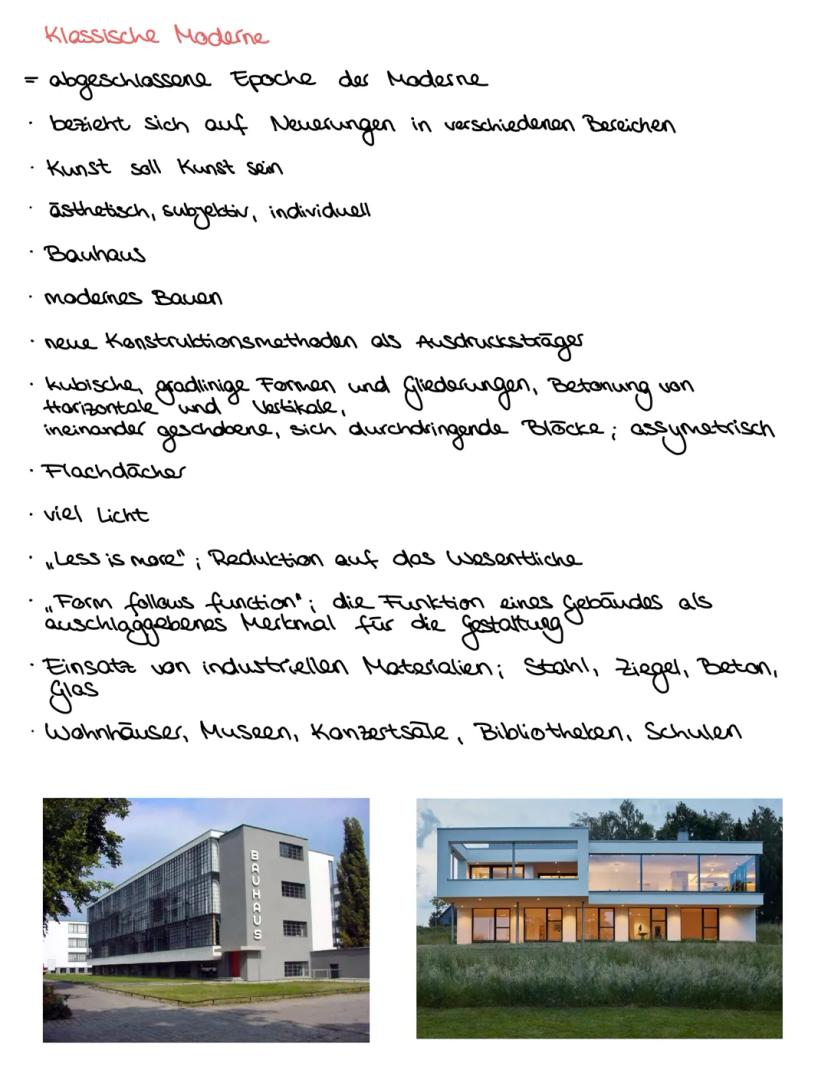 Klassische Moderne
= abgeschlossene Epoche der Moderne
· bezieht sich auf Neuerungen in verschiedenen Bereichen
· Kunst soll Kunst sein
· ästhetisch, subjektiv, individuell
· Bauhaus
· modernes Bauen
· neue Konstruktionsmethoden als Ausdrucksträger
· kubische, gradlinige Formen und Gliederungen, Betonung von
Horizontale und Vertikale,
ineinander geschobene, sich durchdringende Blöcke; assymetrisch
· Flachdächer
· viel Licht
· „Less is more"; Reduktion auf das Wesentliche
· „Form follows function"; die Funktion eines Gebäudes als
auschlaggebenes Merkmal für die Gestaltung
· Einsatz von industriellen Materialien; Stahl, Ziegel, Beton,
Glas
· Wohnhäuser, Museen, Konzertsäle, Bibliotheken, Schulen
BAUHAUS